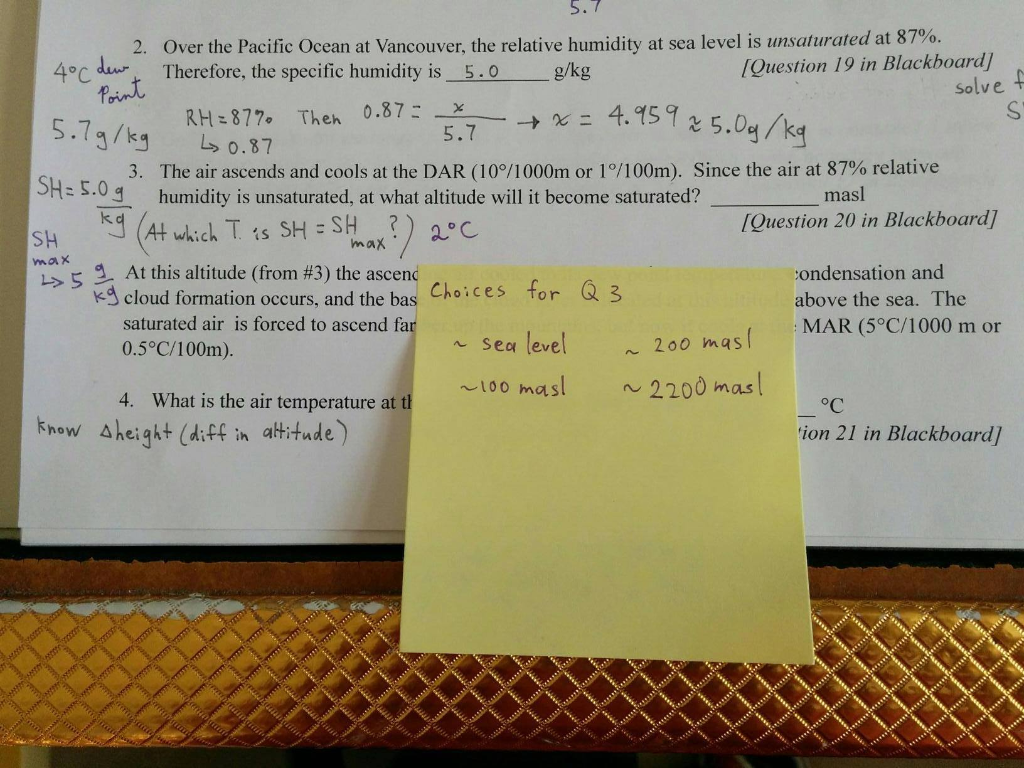 5.7
2. Over the Pacific Ocean at Vancouver, the relative humidity at sea level is unsaturated at 87%.
4°C dew Point
Therefore, the specific humidity is 5.0 g/kg [Question 19 in Blackboard]
solve
5.7g/kg RH=87% Then 0.87 = x/5.7 → x = 4.959 ≈ 5.0g/kg
↳ 0.87
3. The air ascends and cools at the DAR (10°/1000m or 1°/100m). Since the air at 87% relative
SH= 5.0 g/kg
humidity is unsaturated, at what altitude will it become saturated? ________ masl
(At which T. is SH = SH max?) 2°C [Question 20 in Blackboard]
SH max ↳ 5 g/kg
At this altitude (from #3) the ascend condensation and
cloud formation occurs, and the bas above the sea. The
saturated air is forced to ascend far MAR (5°C/1000 m or
0.5°C/100m).
4. What is the air temperature at th °C
know Δheight (diff in altitude) tion 21 in Blackboard]
Choices for Q 3
~ sea level ~ 200 masl
~100 masl ~ 2200 masl